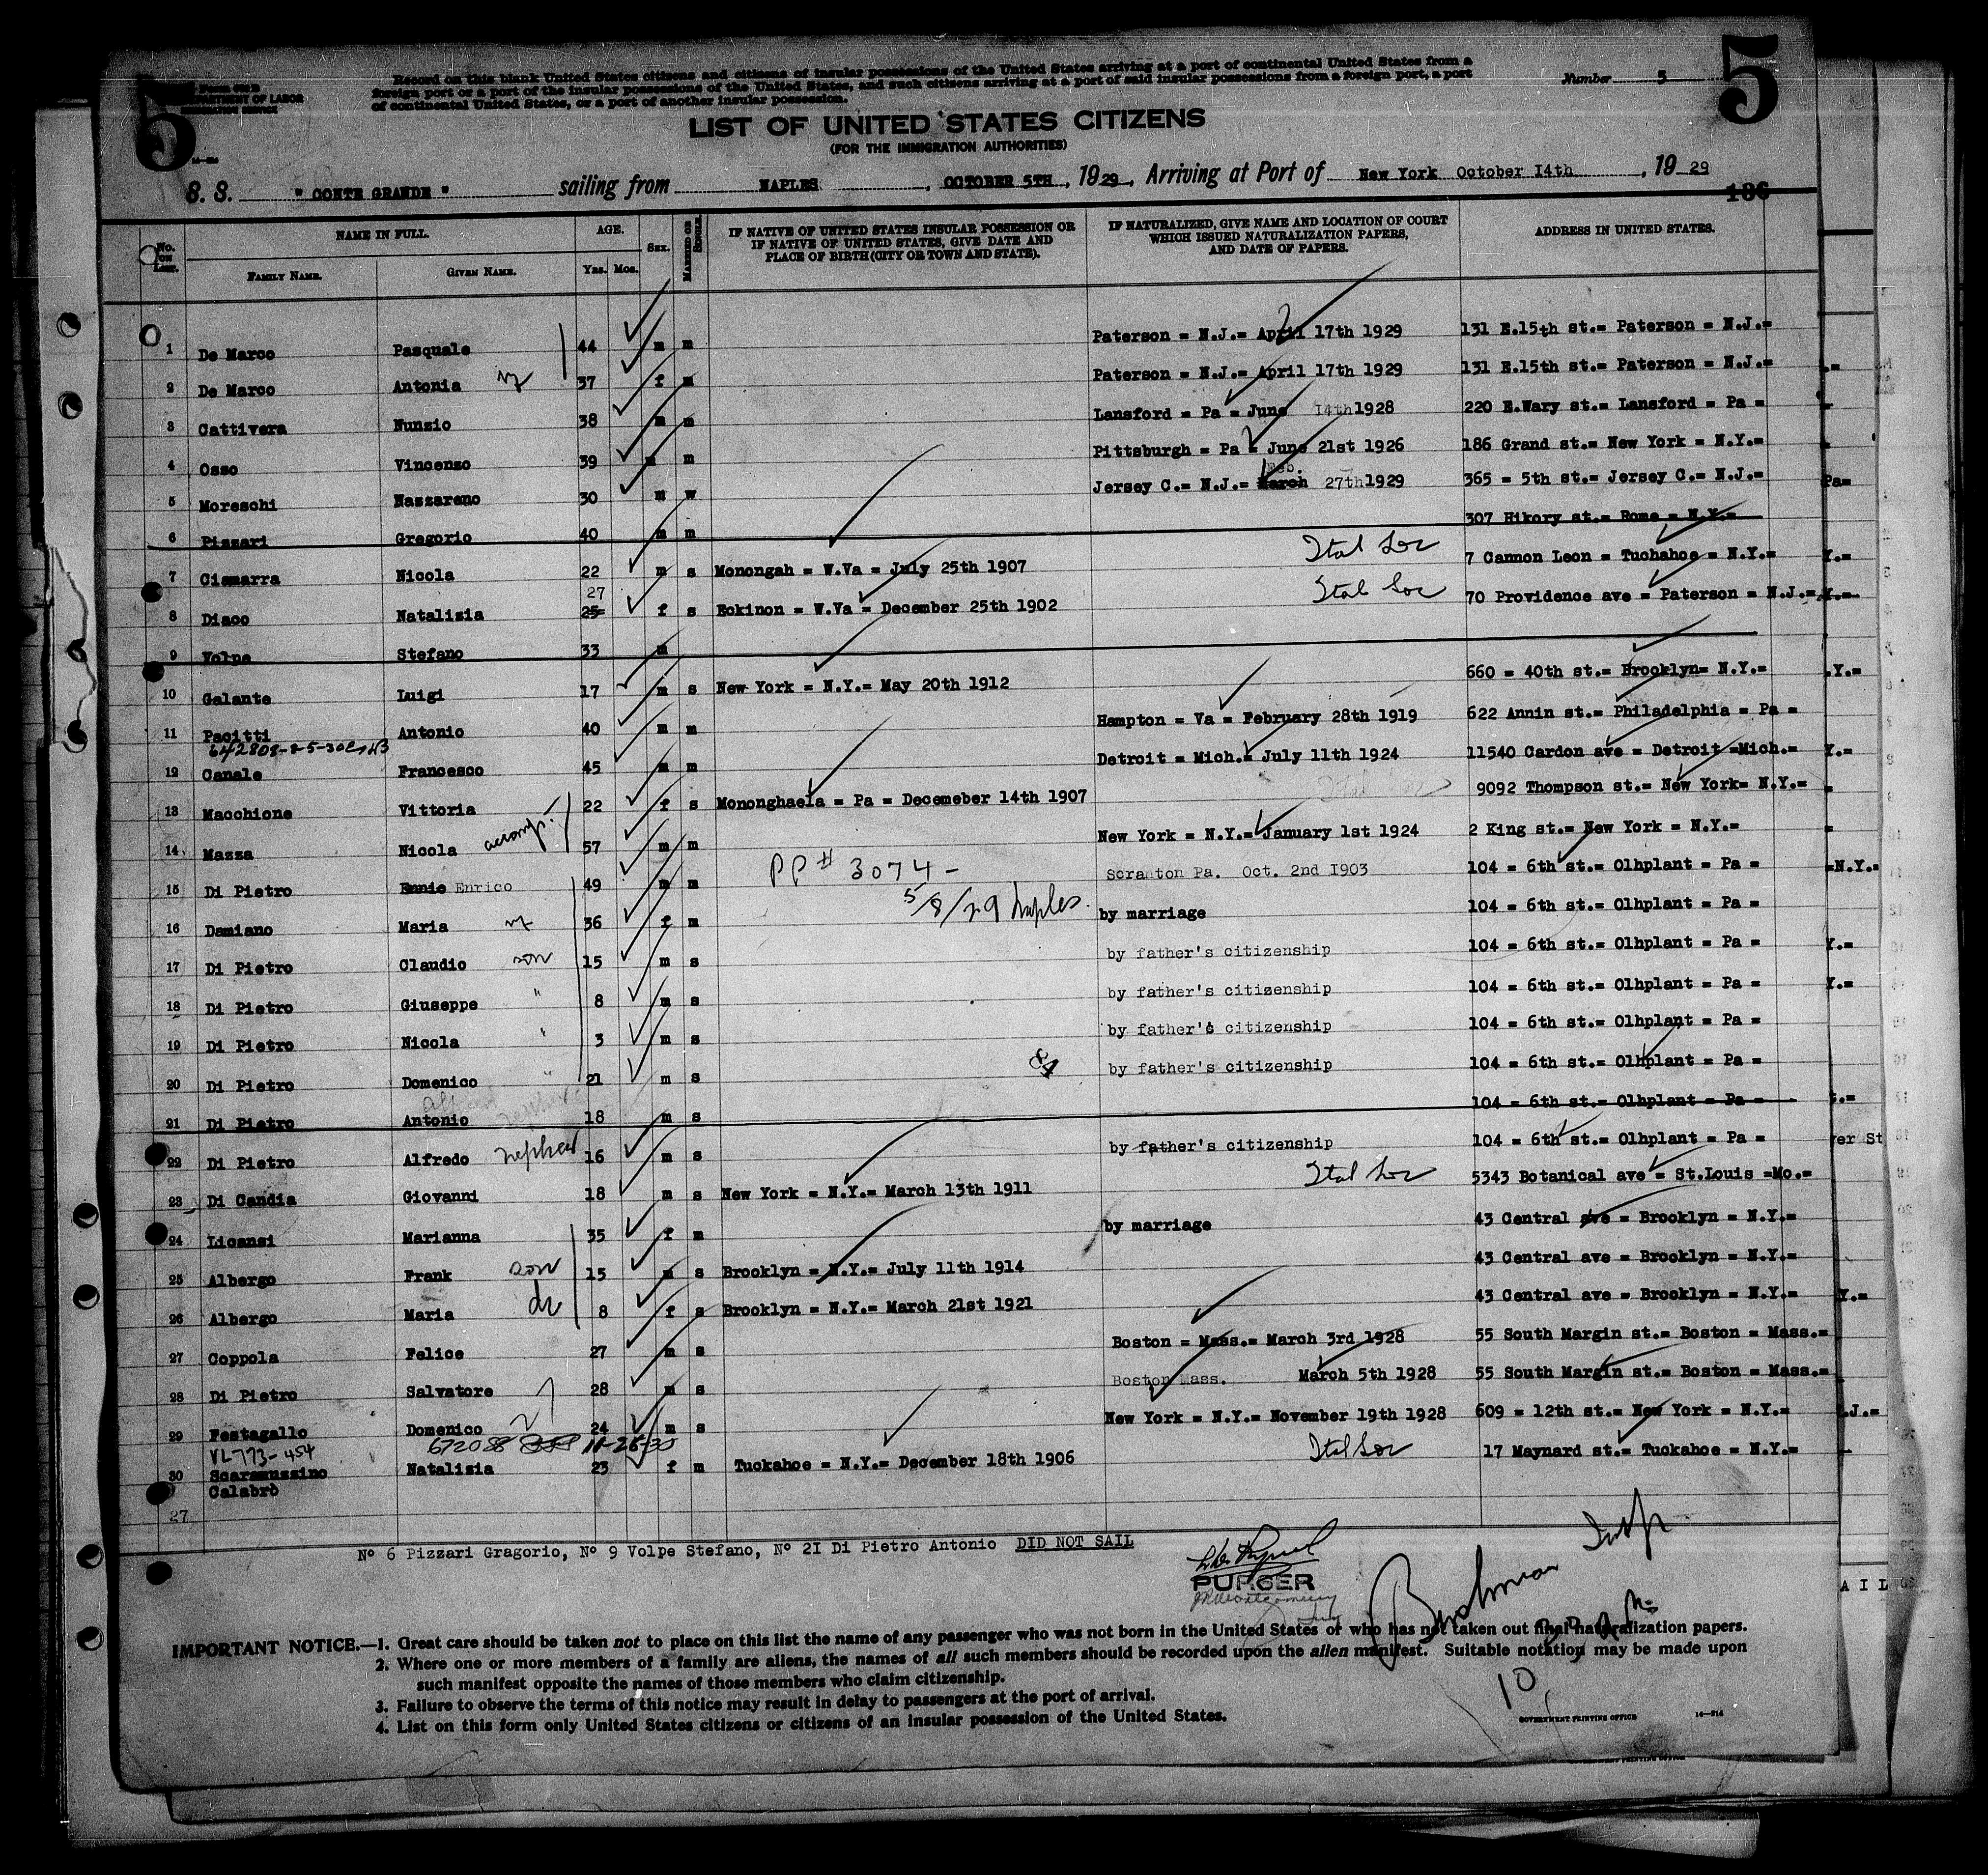 5
5
Form 630 B
DEPARTMENT OF LABOR
IMMIGRATION SERVICE
Record on this blank United States citizens and citizens of insular possessions of the United States arriving at a port of continental United States from a
foreign port or a port of the insular possessions of the United States, and such citizens arriving at a port of said insular possessions from a foreign port, a port
of continental United States, or a port of another insular possession.
Number 5
LIST OF UNITED STATES CITIZENS
(FOR THE IMMIGRATION AUTHORITIES)
S. S. " CONTE GRANDE " sailing from NAPLES , OCTOBER 5TH , 1929 , Arriving at Port of New York October 14th , 19 29
186
No. ON LIST. NAME IN FULL. FAMILY NAME. GIVEN NAME. AGE. Yrs. Mos. SEX. MARRIED OR SINGLE. IF NATIVE OF UNITED STATES INSULAR POSSESSION OR IF NATIVE OF UNITED STATES, GIVE DATE AND PLACE OF BIRTH (CITY OR TOWN AND STATE). IF NATURALIZED, GIVE NAME AND LOCATION OF COURT WHICH ISSUED NATURALIZATION PAPERS, AND DATE OF PAPERS. ADDRESS IN UNITED STATES.
1 De Marco Pasquale 44 m m Paterson = N.J.= April 17th 1929 131 E.15th st.= Paterson = N.J.=
2 De Marco Antonia 37 f m Paterson = N.J.= April 17th 1929 131 E.15th st.= Paterson = N.J.=
3 Cattivera Nunzio 38 m m Lansford = Pa = June 14th 1928 220 E.Wary st.= Lansford = Pa =
4 Osso Vincenzo 39 m m Pittsburgh = Pa = June 21st 1926 186 Grand st.= New York = N.Y.=
5 Moreschi Nazzareno 30 m w Jersey C.= N.J.= March Feb. 27th 1929 365 = 5th st.= Jersey C.= N.J.=
6 Pizzari Gregorio 40 m m 307 Hikory st.= Rome = N.Y.=
7 Cismarra Nicola 22 m s Monongah = W.Va = July 25th 1907 Ital Soc 7 Cannon Leon = Tuchahoe = N.Y.=
8 Diaco Natalizia 25 27 f s Eckinon = W.Va = December 25th 1902 Ital Soc 70 Providence ave = Paterson = N.J.=
9 Volpe Stefano 33 m
10 Galante Luigi 17 m s New York = N.Y.= May 20th 1912 660 = 40th st.= Brooklyn= N.Y.=
11 Pacitti Antonio 40 m m Hampton = Va = February 28th 1919 622 Annin st.= Philadelphia = Pa =
12 Canale Francesco 45 m m Detroit = Mich.= July 11th 1924 11540 Cardon ave = Detroit =Mich.=
13 Macchione Vittoria 22 f s Mononghaela = Pa = Decemeber 14th 1907 9092 Thompson st.= New York= N.Y.=
accomp.
14 Mazza Nicola 57 m m New York = N.Y.= January 1st 1924 2 King st.= New York = N.Y.=
PP# 3074 -
5/8/29 Naples.
15 Di Pietro Ennie Enrico 49 m m Scranton Pa. Oct. 2nd 1903 104 = 6th st.= Olhplant = Pa =
16 Damiano Maria 36 f m by marriage 104 = 6th st.= Olhplant = Pa =
17 Di Pietro Claudio son 15 m s by father's citizenship 104 = 6th st.= Olhplant = Pa =
18 Di Pietro Giuseppe " 8 m s by father's citizenship 104 = 6th st.= Olhplant = Pa =
19 Di Pietro Nicola " 3 m s by father's citizenship 104 = 6th st.= Olhplant = Pa =
20 Di Pietro Domenico " 21 m s by father's citizenship 104 = 6th st.= Olhplant = Pa =
21 Di Pietro Antonio 18 m s 104 = 6th st.= Olhplant = Pa =
22 Di Pietro Alfredo nephew 16 m s by father's citizenship 104 = 6th st.= Olhplant = Pa =
23 Di Candia Giovanni 18 m s New York = N.Y.= March 13th 1911 Ital Soc 5343 Botanical ave = St.Louis =Mo.=
24 Licansi Marianna 35 f m by marriage 43 Central ave = Brooklyn = N.Y.=
25 Albergo Frank son 15 m s Brooklyn = N.Y.= July 11th 1914 43 Central ave = Brooklyn = N.Y.=
26 Albergo Maria 8 f s Brooklyn = N.Y.= March 21st 1921 43 Central ave = Brooklyn = N.Y.=
27 Coppola Felice 27 m s Boston = Mass.= March 3rd 1928 55 South Margin st.= Boston = Mass.=
28 Di Pietro Salvatore 28 m s Boston Mass. March 5th 1928 55 South Margin st.= Boston = Mass.=
29 Festagallo Domenico 24 m s New York = N.Y.= November 19th 1928 609 = 12th st.= New York = N.Y.=
VL 773-454
30 Scaramuzzino Natalizia 23 f m Tuokahoe = N.Y.= December 18th 1906 Ital Soc 17 Maynard st.= Tuokahoe = N.Y.=
Calabrò
27
Nº 6 Pizzari Gragorio, Nº 9 Volpe Stefano, Nº 2I Di Pietro Antonio DID NOT SAIL
PURSER
Insp
IMPORTANT NOTICE.—1. Great care should be taken not to place on this list the name of any passenger who was not born in the United States or who has not taken out final naturalization papers.
2. Where one or more members of a family are aliens, the names of all such members should be recorded upon the alien manifest. Suitable notation may be made upon
such manifest opposite the names of those members who claim citizenship.
3. Failure to observe the terms of this notice may result in delay to passengers at the port of arrival.
4. List on this form only United States citizens or citizens of an insular possession of the United States.
10
GOVERNMENT PRINTING OFFICE 14—214